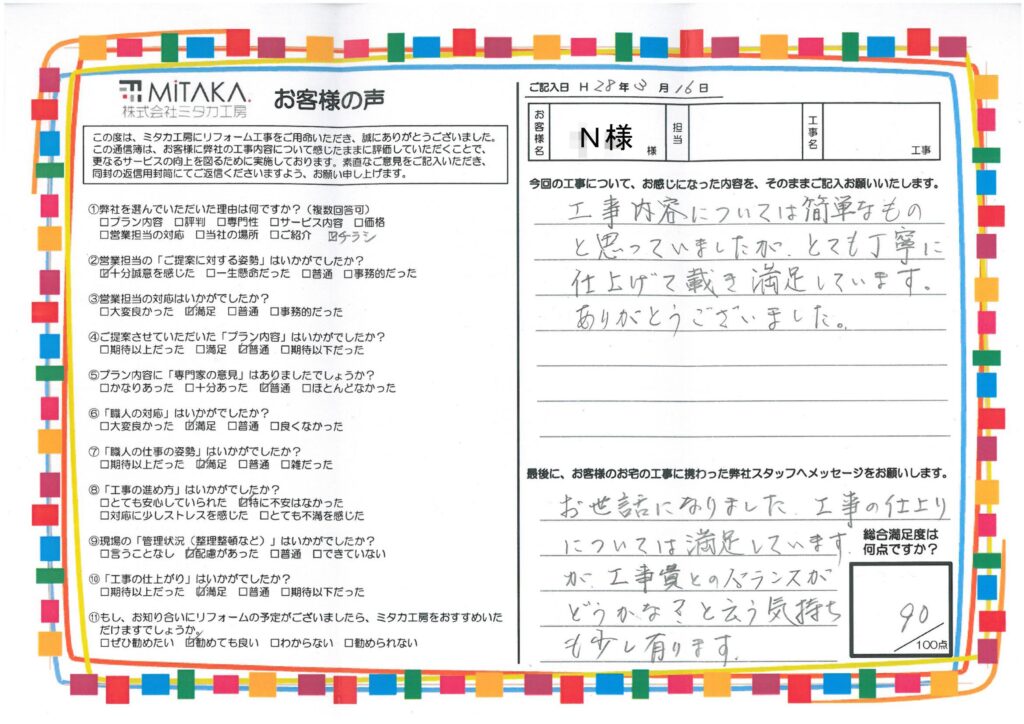 MiTAKA.
株式会社ミタカ工房
お客様の声
この度は、ミタカ工房にリフォーム工事をご用命いただき、誠にありがとうございました。
この通信簿は、お客様に弊社の工事内容について感じたままに評価していただくことで、
更なるサービスの向上を図るために実施しております。素直なご意見をご記入いただき、
同封の返信用封筒にてご返信くださいますよう、お願い申し上げます。
①弊社を選んでいただいた理由は何ですか？（複数回答可）
□プラン内容 □評判 □専門性 □サービス内容 □価格
□営業担当の対応 □当社の場所 □ご紹介 ☑チラシ
②営業担当の「ご提案に対する姿勢」はいかがでしたか？
☑十分誠意を感じた □一生懸命だった □普通 □事務的だった
③営業担当の対応はいかがでしたか？
□大変良かった ☑満足 □普通 □事務的だった
④ご提案させていただいた「プラン内容」はいかがでしたか？
□期待以上だった □満足 ☑普通 □期待以下だった
⑤プラン内容に「専門家の意見」はありましたでしょうか？
□かなりあった □十分あった ☑普通 □ほとんどなかった
⑥「職人の対応」はいかがでしたか？
□大変良かった ☑満足 □普通 □良くなかった
⑦「職人の仕事の姿勢」はいかがでしたか？
□期待以上だった ☑満足 □普通 □雑だった
⑧「工事の進め方」はいかがでしたか？
□とても安心していられた ☑特に不安はなかった
□対応に少しストレスを感じた □とても不満を感じた
⑨現場の「管理状況（整理整頓など）」はいかがでしたか？
□言うことなし ☑配慮があった □普通 □できていない
⑩「工事の仕上がり」はいかがでしたか？
□期待以上だった ☑満足 □普通 □期待以下だった
⑪もし、お知り合いにリフォームの予定がございましたら、ミタカ工房をおすすめいた
だけますでしょうか。
□ぜひ勧めたい ☑勧めても良い □わからない □勧められない
ご記入日 H 28年 3月 16日
お客様名 N様 様 担当 工事名 工事
今回の工事について、お感じになった内容を、そのままご記入お願いいたします。
工事内容については簡単なもの
と思っていましたが、とても丁寧に
仕上げて載き満足しています。
ありがとうございました。
最後に、お客様のお宅の工事に携わった弊社スタッフへメッセージをお願いします。
お世話になりました、工事の仕上り
については満足しています
が、工事費とのバランスが
どうかな？と云う気持ち
も少し有ります。
総合満足度は
何点ですか？
90
/100点